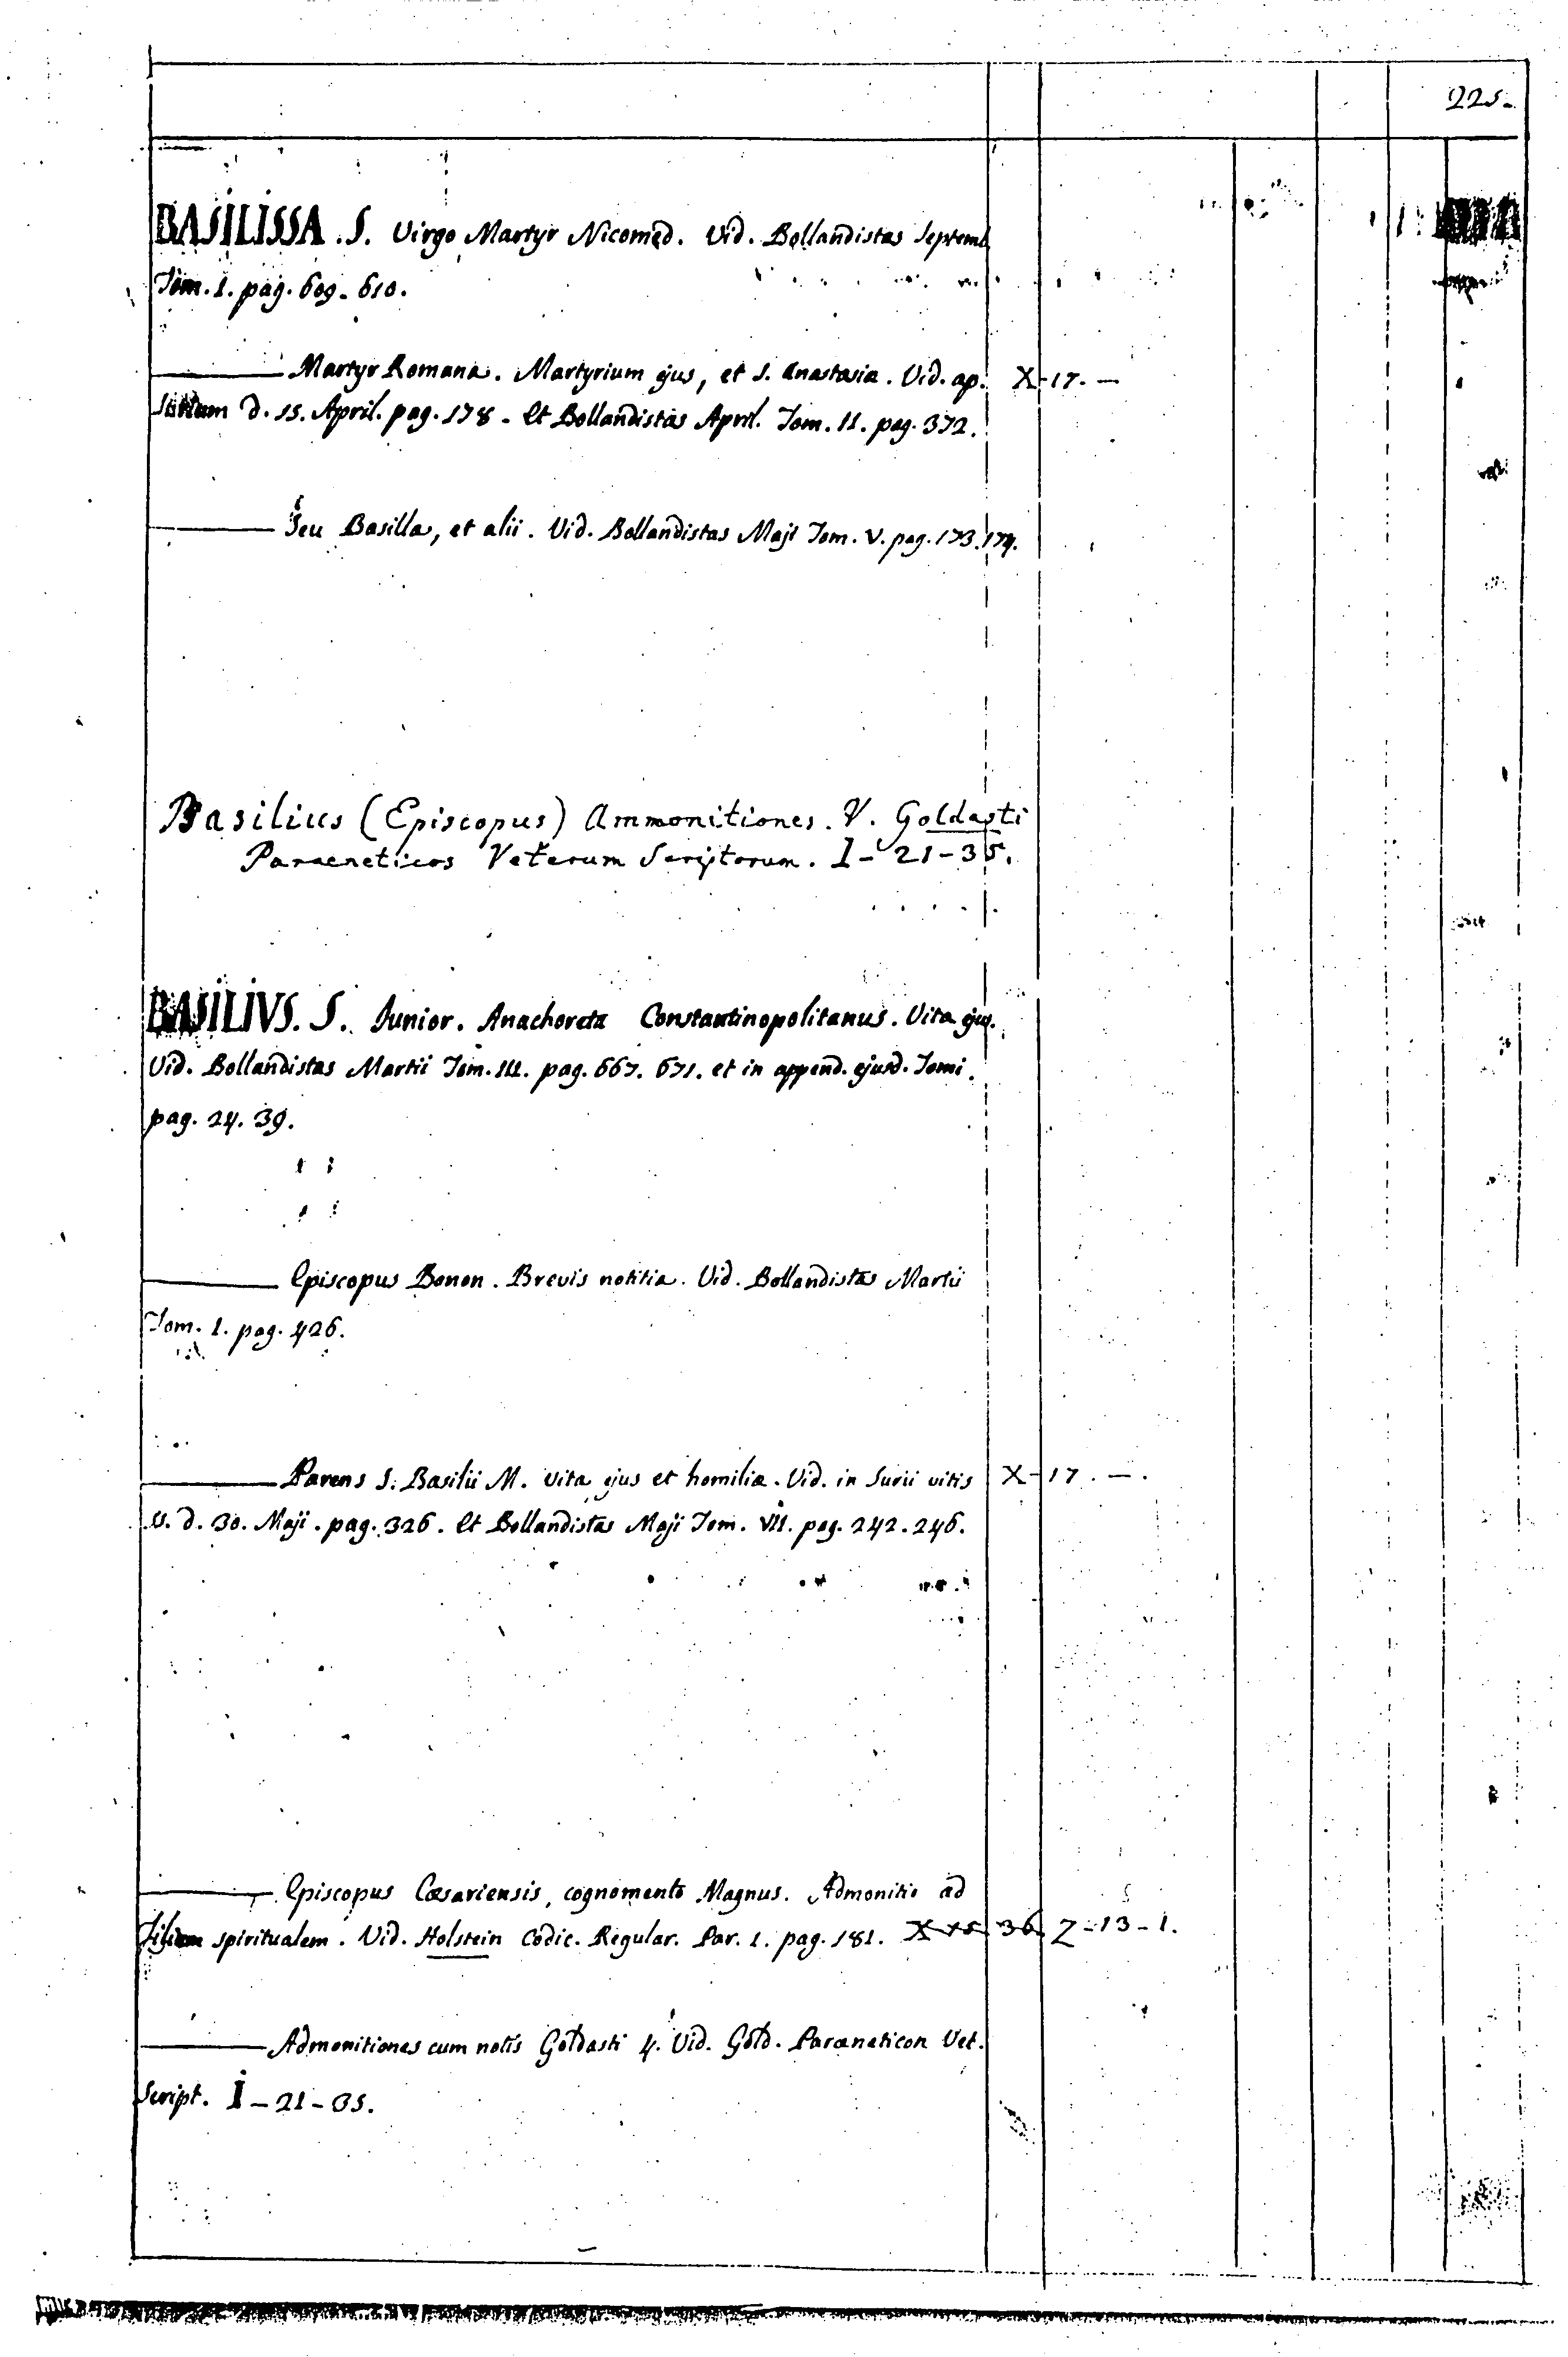 225.
BASILISSA. S. Virgo Martyr Nicomed. Vid. Bollandistas Septemb.
Tom. I. pag. 609. 610.
Martyr Romana. Martyrium ejus, et S. Anastasia. Vid. ap. X-17. —
d. 15. April. pag. 178. Et Bollandistas April. Tom. II. pag. 372.
Seu Basilla, et alii. Vid. Bollandistas Maji Tom. V. pag. 173. 174.
Basilius (Episcopus) Ammonitiones. V. Goldasti
Paraeneticos Veterum Scriptorum. I - 21 - 35.
BASILIVS. S. Junior. Anachoreta Constantinopolitanus. Vita ejus.
Vid. Bollandistas Martii Tom. III. pag. 667. 671. et in append. ejusd. Tomi.
pag. 24. 39.
Episcopus Bonon. Brevis notitia. Vid. Bollandistas Martii
Tom. I. pag. 426.
Parens S. Basilii M. Vita ejus et homilia. Vid. in Surii vitis X-17. —.
d. 30. Maji. pag. 326. Et Bollandistas Maji Tom. VII. pag. 242. 246.
Episcopus Cæsariensis, cognomento Magnus. Admonitio ad
filium spiritualem. Vid. Holstein Codic. Regular. Par. I. pag. 181. X 15 36 Z-13-1.
Admonitiones cum notis Goldasti 4. Vid. Gold. Paræneticon Vet.
Script. I - 21 - 35.